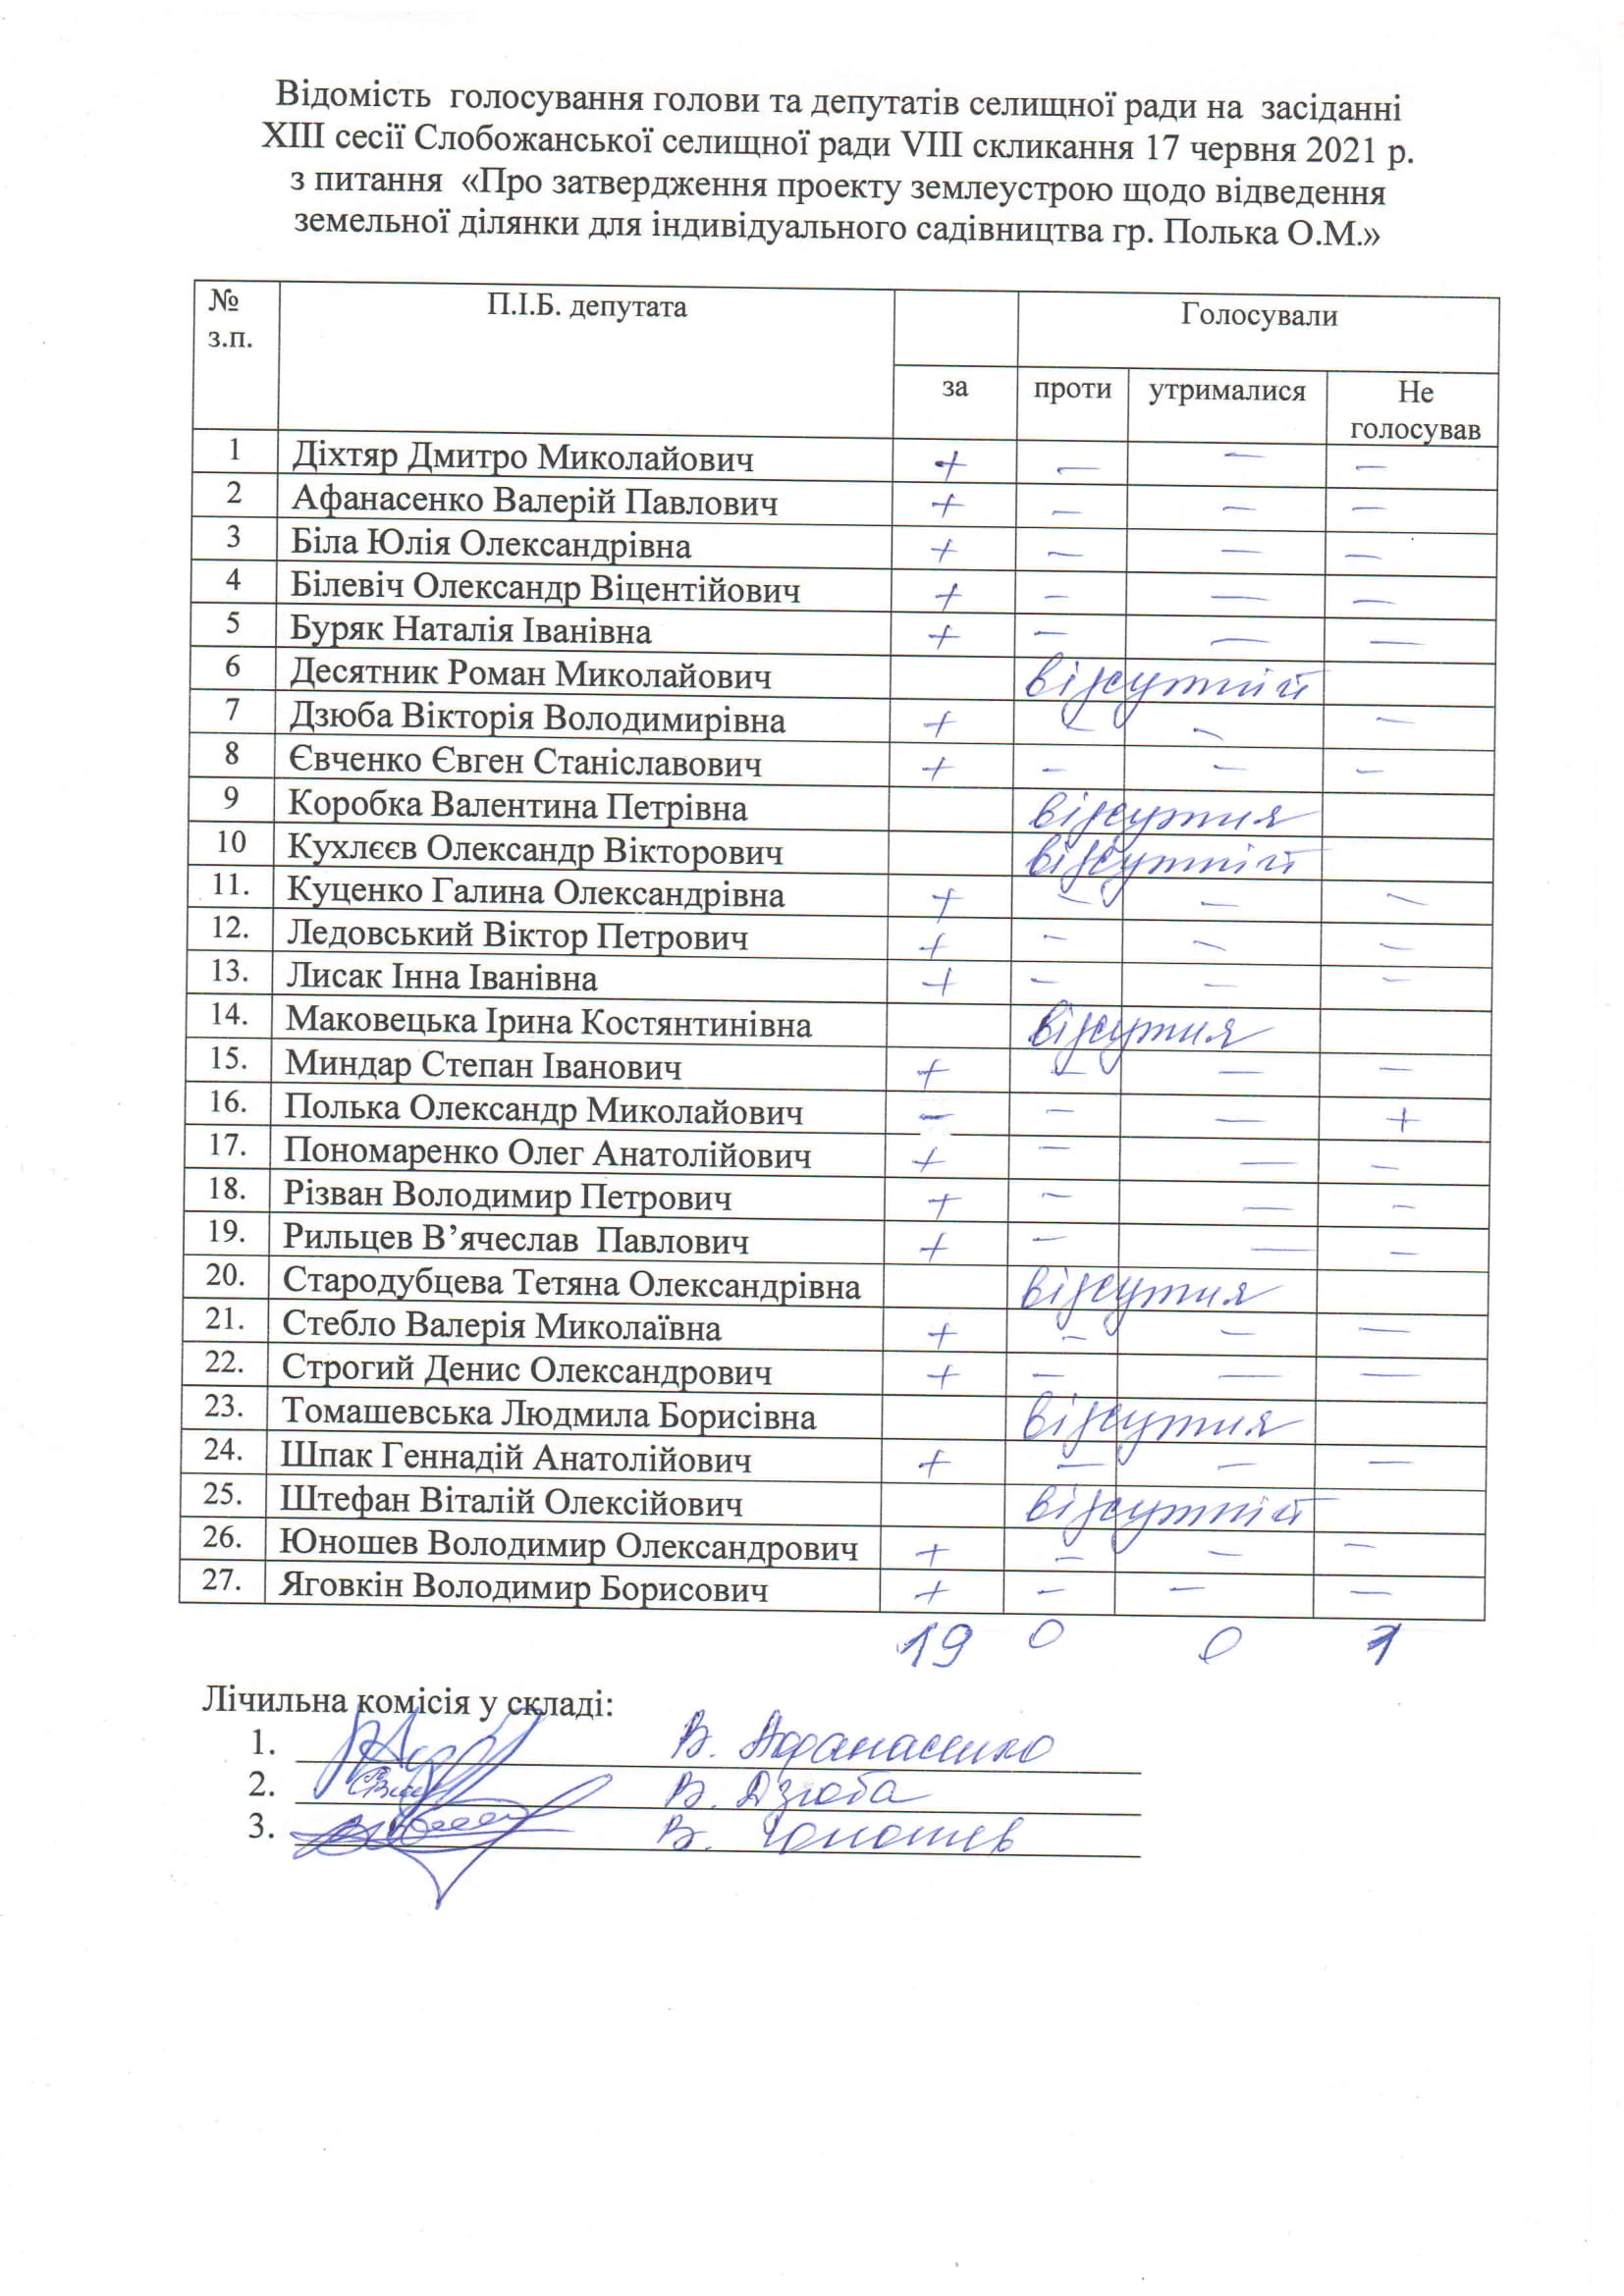 Відомість голосування голови та депутатів селищної ради на засіданні
XIII сесії Слобожанської селищної ради VIII скликання 17 червня 2021 р.
з питання «Про затвердження проекту землеустрою щодо відведення
земельної ділянки для індивідуального садівництва гр. Полька О.М.»
№ з.п. П.І.Б. депутата Голосували
за проти утрималися Не голосував
1 Діхтяр Дмитро Миколайович + – – –
2 Афанасенко Валерій Павлович + – – –
3 Біла Юлія Олександрівна + – – –
4 Білевіч Олександр Віцентійович + – – –
5 Буряк Наталія Іванівна + – – –
6 Десятник Роман Миколайович відсутній
7 Дзюба Вікторія Володимирівна + – – –
8 Євченко Євген Станіславович + – – –
9 Коробка Валентина Петрівна відсутня
10 Кухлєєв Олександр Вікторович відсутній
11. Куценко Галина Олександрівна + – – –
12. Ледовський Віктор Петрович + – – –
13. Лисак Інна Іванівна + – – –
14. Маковецька Ірина Костянтинівна відсутня
15. Миндар Степан Іванович + – – –
16. Полька Олександр Миколайович – – – +
17. Пономаренко Олег Анатолійович + – – –
18. Різван Володимир Петрович + – – –
19. Рильцев В’ячеслав Павлович + – – –
20. Стародубцева Тетяна Олександрівна відсутня
21. Стебло Валерія Миколаївна + – – –
22. Строгий Денис Олександрович + – – –
23. Томашевська Людмила Борисівна відсутня
24. Шпак Геннадій Анатолійович + – – –
25. Штефан Віталій Олексійович відсутній
26. Юношев Володимир Олександрович + – – –
27. Яговкін Володимир Борисович + – – –
19 0 0 1
Лічильна комісія у складі:
1. В. Афанасенко
2. В. Дзюба
3. В. Юношев